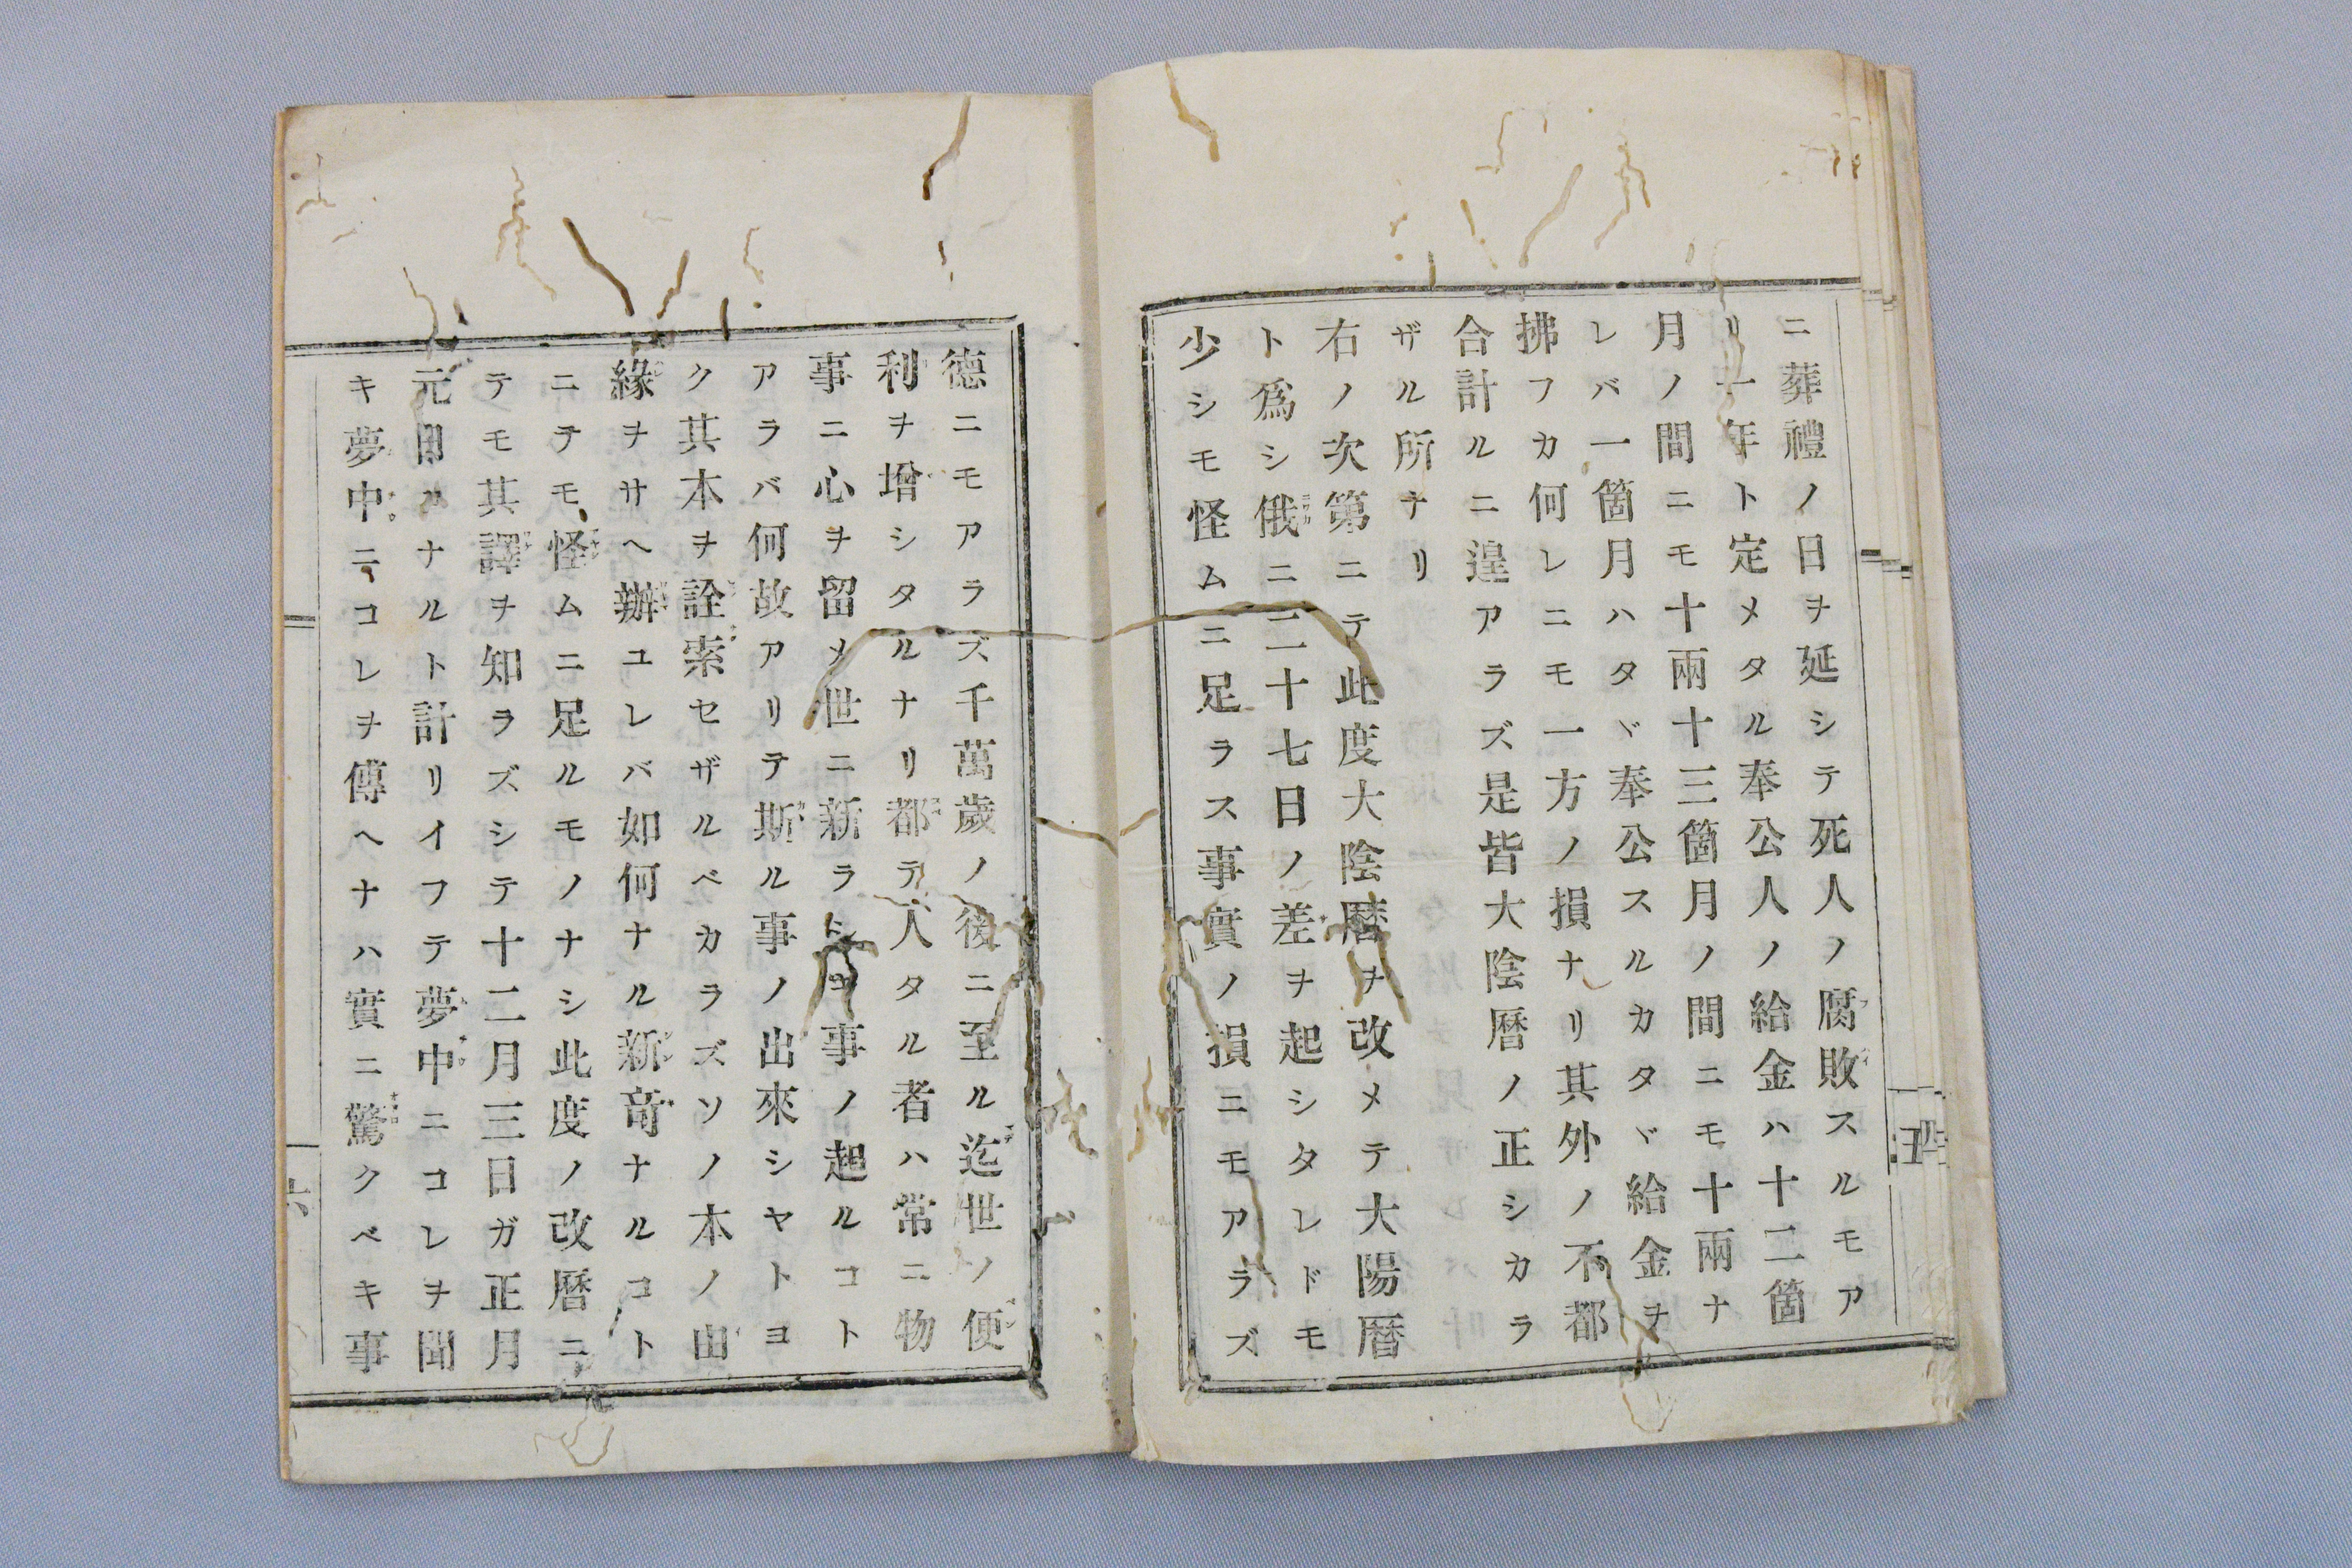 ニ葬禮ノ日ヲ延シテ死人ノ腐敗スルモア
リ一年ト定メタル奉公人ノ給金ハ十二箇
月ノ間ニモ十兩十三箇月ノ間ニモ十兩ナ
レバ一箇月ハタヾ奉公スルカタヾ給金ヲ
拂フカ何レニモ一方ノ損ナリ其外ノ不都
合計ルニ遑アラズ是皆大陰曆ノ正シカラ
ザル所ナリ
右ノ次第ニテ此度大陰曆ヲ改メテ大陽曆
ト爲シ俄ニ二十七日ノ差ヲ起シタレドモ
少シモ怪ムニ足ラス事實ノ損ニモアラズ
五
德ニモアラズ千萬歲ノ後ニ至ル迄世ノ便
利ヲ增シタルナリ都テ人タル者ハ常ニ物
事ニ心ヲ留メ世ニ新ラトシヨ事ノ起ルコト
アラバ何故アリテ斯ル事ノ出來シヤトヨ
ク其本ヲ詮索セザルベカラズソノ本ノ由
緣ヲサヘ辦ユレバ如何ナル新奇ナルコト
ニテモ怪ムニ足ルモノナシ此度ノ改曆ニ
テモ其譯ヲ知ラズシテ十二月三日ガ正月
元日ルナルト計リイフテ夢中ニコレヲ聞
キ夢中ニコレヲ傳ヘナハ實ニ驚クベキ事
六